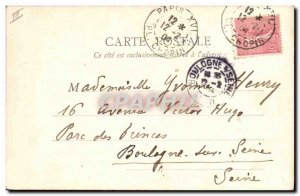 III
PARIS XVI
PL. CHOPIN
CARTE POSTALE
Ce côté est exclusivement réservé à l'adresse
BOULOGNE S/SEINE
Mademoiselle Yvonne Henry
16 Avenue Victor Hugo
Parc des Princes
Boulogne sur Seine
Seine